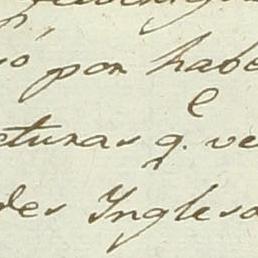 ió por habe
eturas q.e ve
des Inglesa